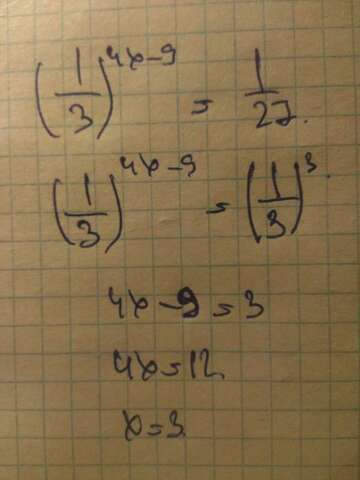 (1/3)^(4x-9) = 1/27.
(1/3)^(4x-9) = (1/3)^3.
4x-9=3
4x=12.
x=3.